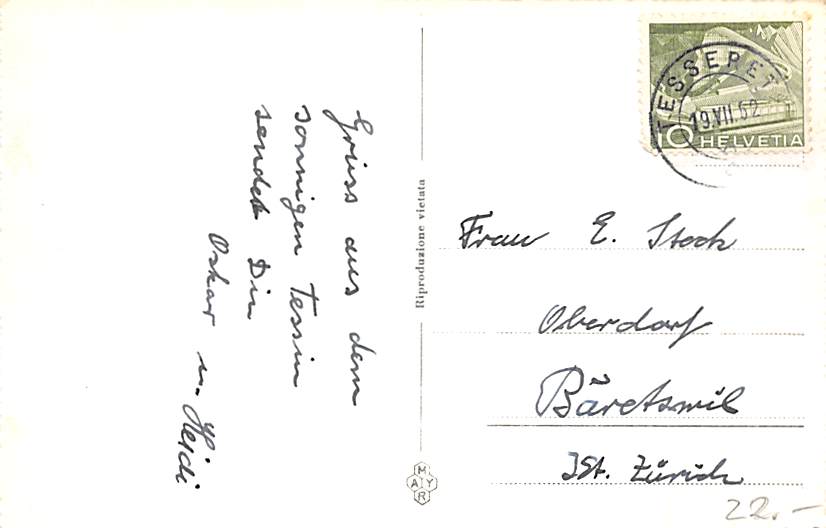 Gruss aus dem
sonnigen Tessin
sendet Dir
Oskar u. Heidi
Riproduzione vietata
MAYR
TESSERET
19.VII.52
10 HELVETIA
Frau E. Stock
Oberdorf
Bäretswil
Kt. Zürich
22.-